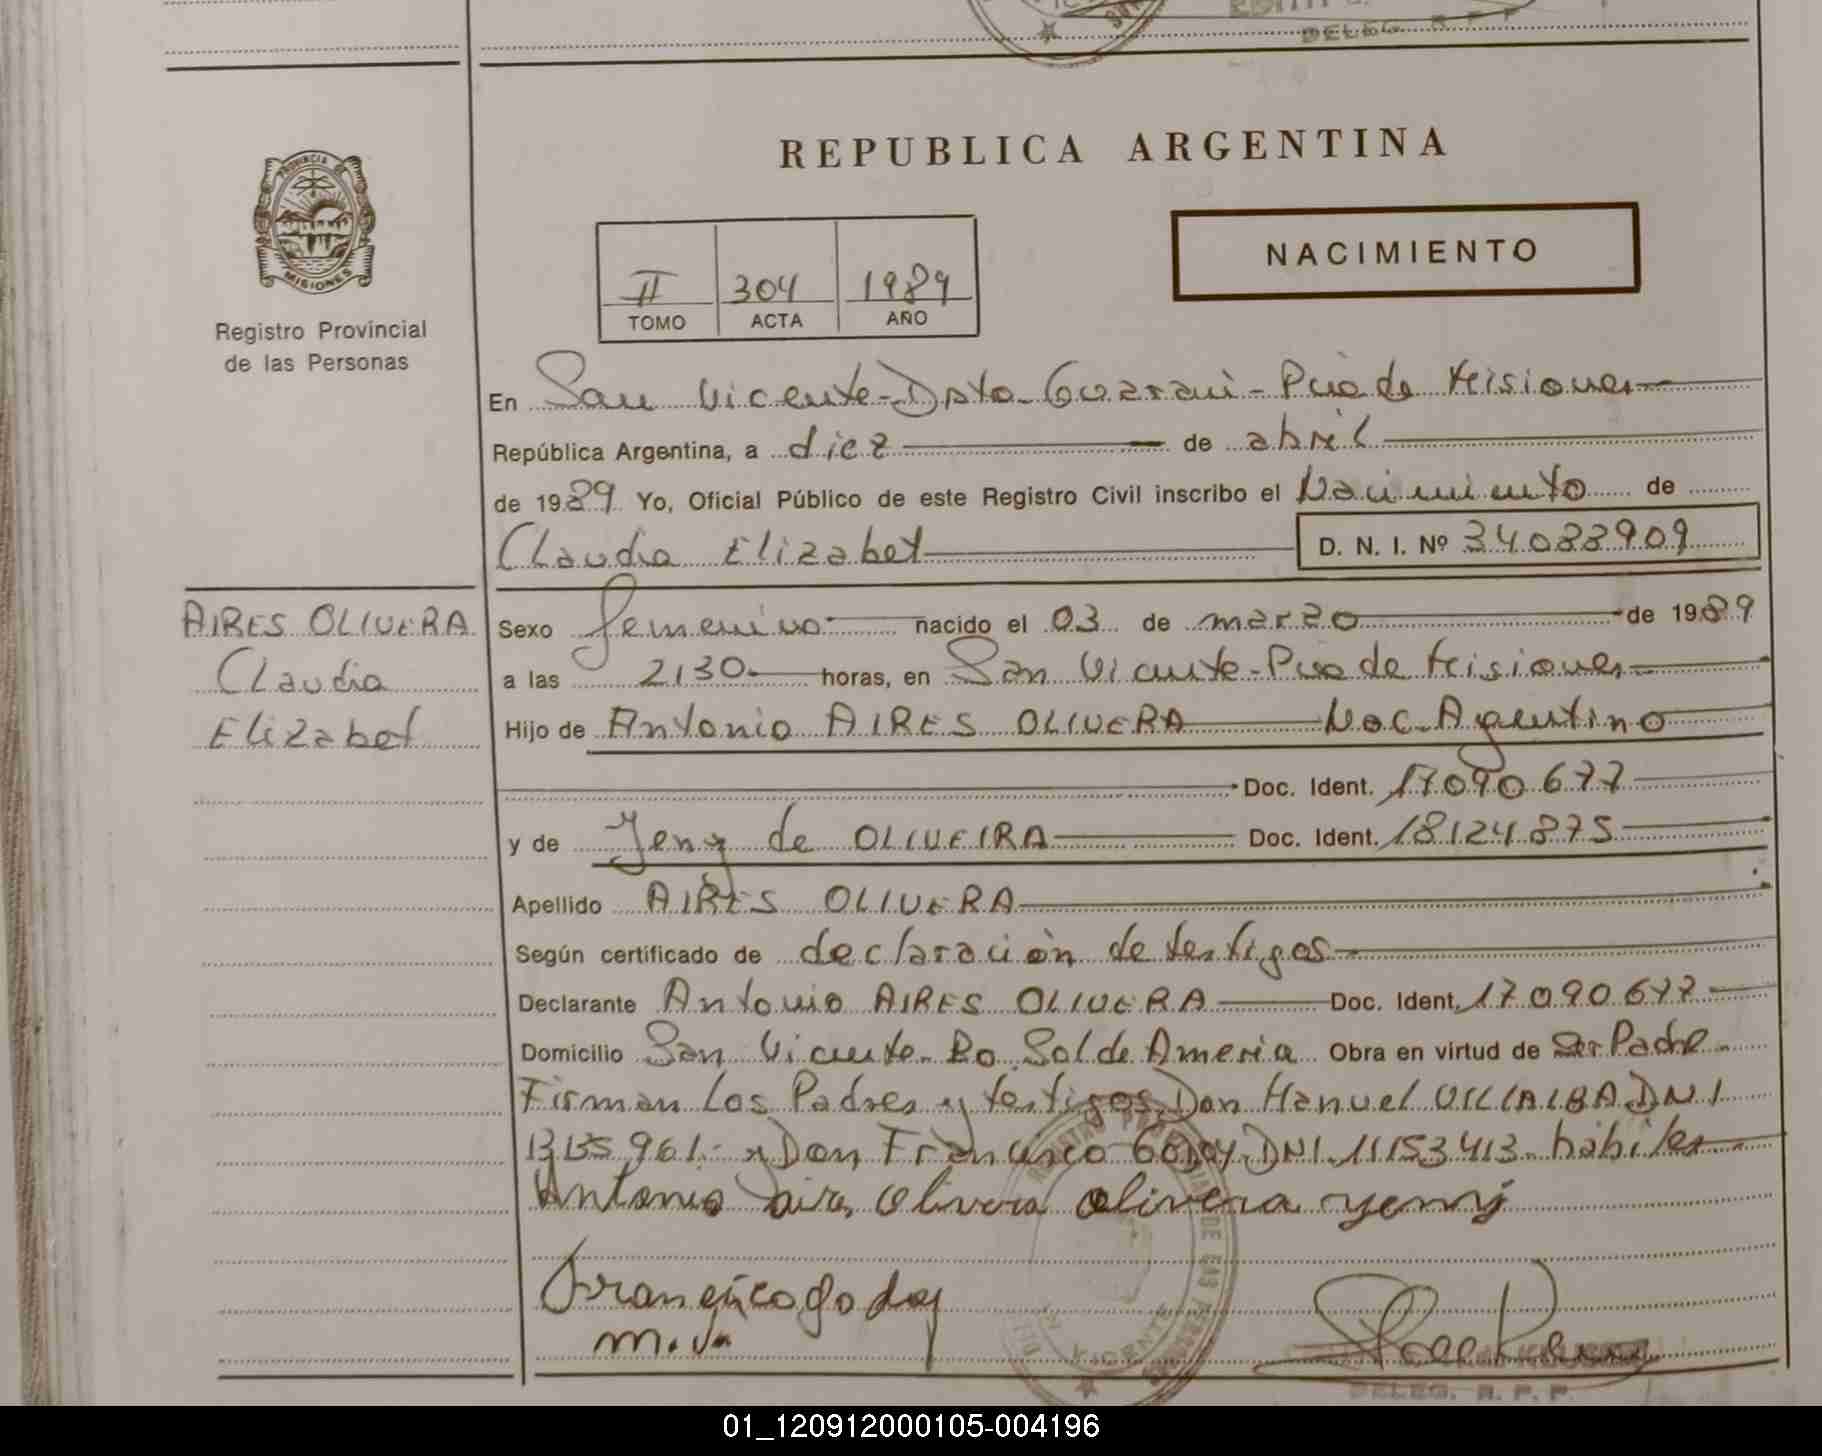 DELEG. R. P. P.
REPUBLICA ARGENTINA
PROVINCIA DE
MISIONES
Registro Provincial
de las Personas
II 304 1989
TOMO ACTA AÑO
NACIMIENTO
En San Vicente-Dpto-Guarani-Pcia de Misiones
República Argentina, a diez de abril
de 1989 Yo, Oficial Público de este Registro Civil inscribo el Nacimiento de
Claudia Elizabet D. N. I. Nº 34083909
AIRES OLIVERA
Claudia
Elizabet
Sexo femenino nacido el 03 de marzo de 1989
a las 2130 horas, en San Vicente-Pcia de Misiones
Hijo de Antonio AIRES OLIVERA Nac. Argentino
Doc. Ident. 17090677
y de Yeny de OLIVEIRA Doc. Ident. 18.124.875
Apellido AIRES OLIVERA
Según certificado de declaración de testigos
Declarante Antonio AIRES OLIVERA Doc. Ident. 17090677
Domicilio San Vicente-Bo Sol de America Obra en virtud de Ser Padre
Firman Los Padres y testigos Don Manuel VILLALBA DNI
961 y Don Francisco GODOY DNI 11153413 hábiles
Antonio aires Olivera Olivera yeny
Francisco godoy
m.v.
VICENTE
DELEG. R. P. P.
01_120912000105-004196